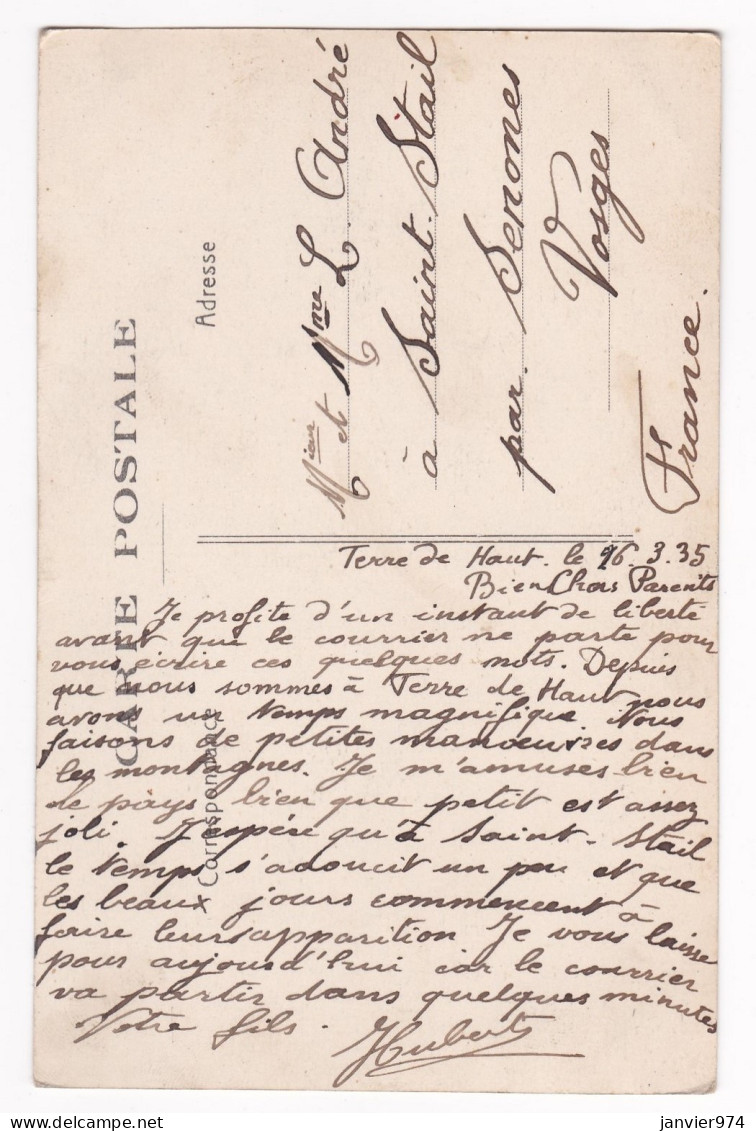 CARTE POSTALE
Correspondance
Adresse
M ieur et Mme L. André
à Saint. Stail
par. Senones
Vosges
France.
Terre de Haut. le 16. 3. 35
Bien Chers Parents
Je profite d'un instant de liberté
avant que le courrier ne parte pour
vous écrire ces quelques mots. Depuis
que nous sommes à Terre de Haut nous
avons un temps magnifique. Nous
faisons de petites manœuvres dans
les montagnes. Je m'amuses bien
le pays bien que petit est assez
joli. J'espére qu'à Saint. Stail
le temps s'adoucit un peu et que
les beaux jours commencent à
faire leurs apparition Je vous laisse
pour aujourd'hui car le courrier
va partir dans quelques minutes
Votre fils. Hubert
janvier974